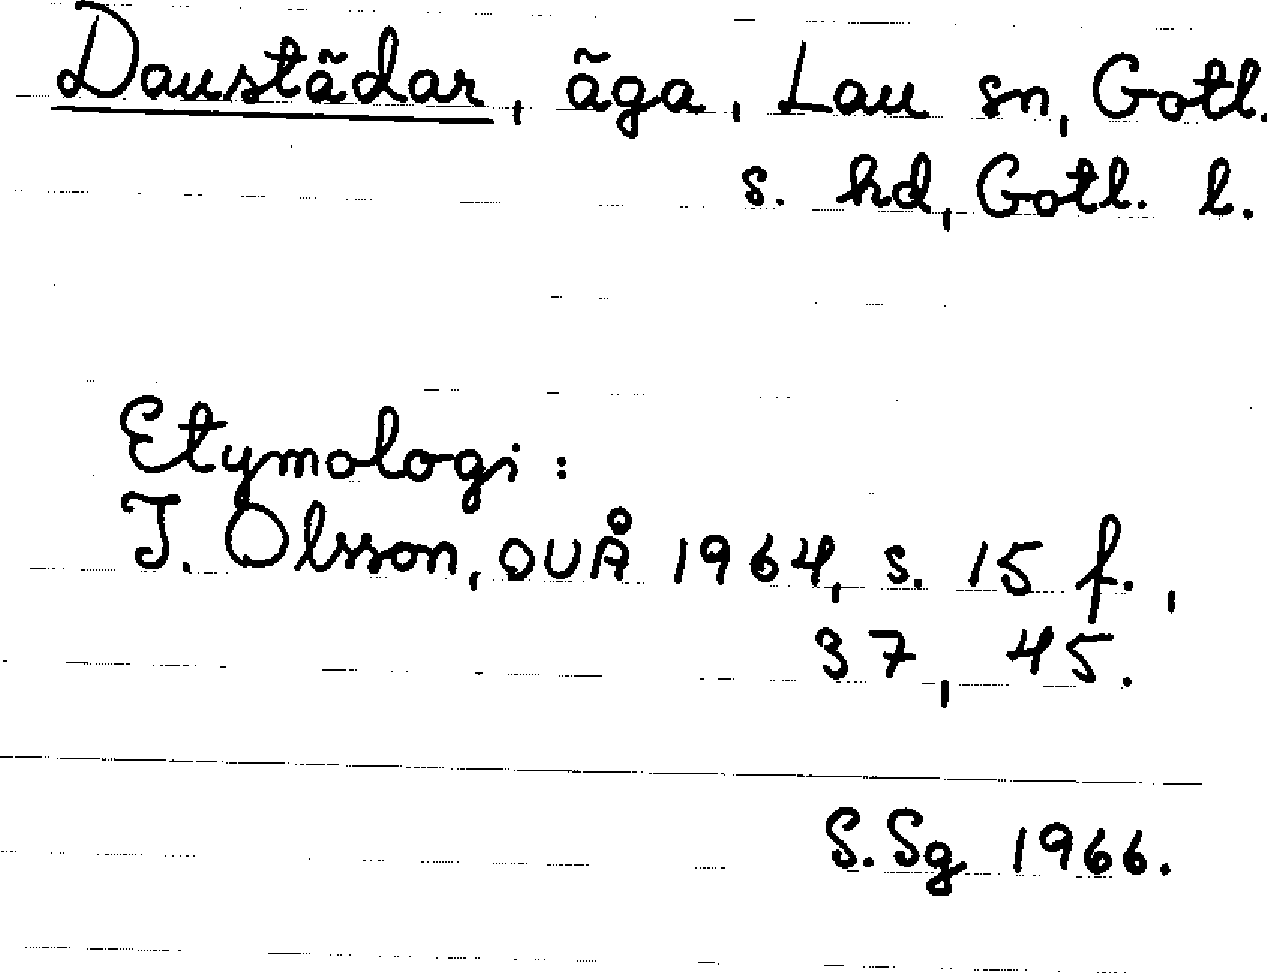 Daustädar, äga, Lau sn, Gotl.
s. hd, Gotl. l.
Etymologi:
I. Olsson, OUÅ 1964, s. 15 f.,
37, 45.
S.Sg 1966.